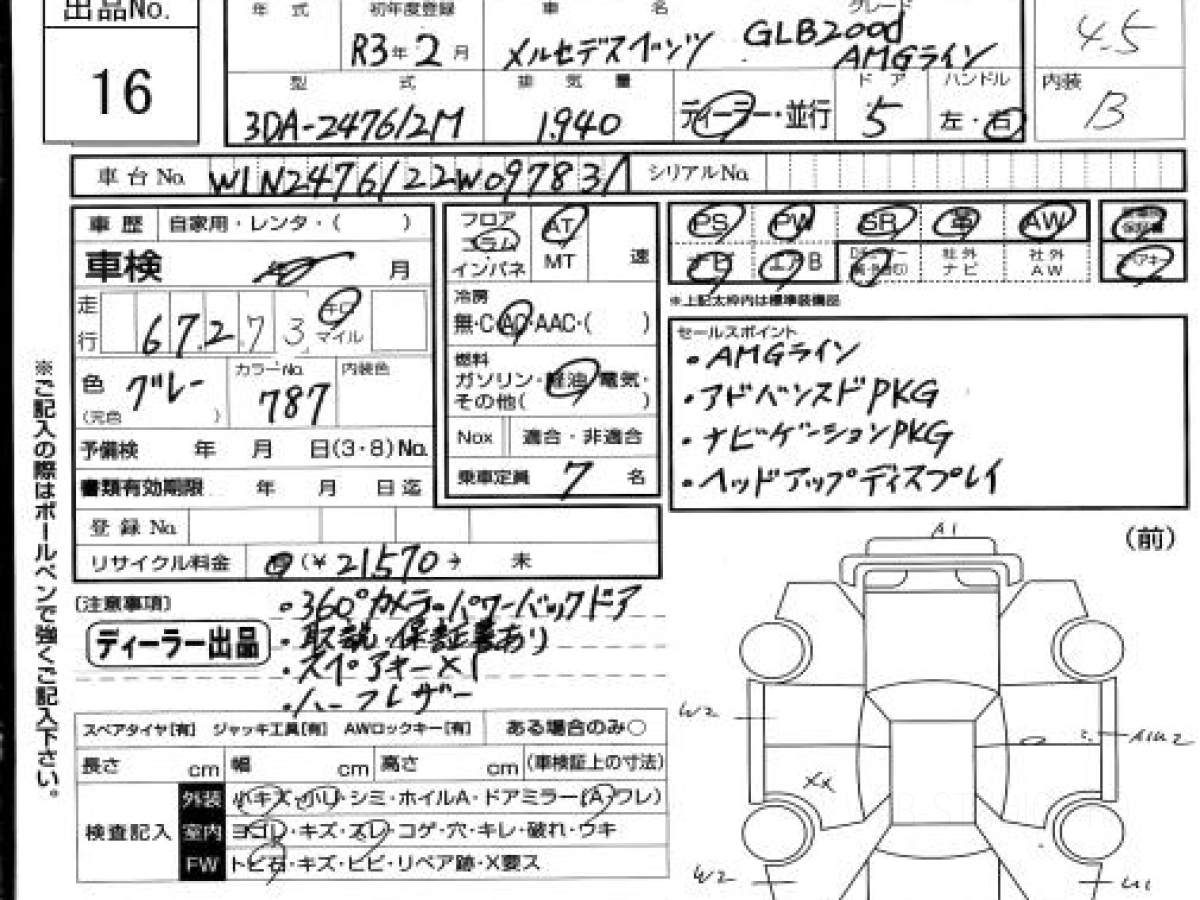 出品No.
16
年 式 初年度登録 車 名 グレード
R3年2月 メルセデスベンツ GLB200d
AMGライン
4.5
型 式 排 気 量 ドア ハンドル
3DA-247612M 1.940 ディーラー・並行 5 左・右
内装
B
車台No. W1N2476122W097831 シリアルNo.
車歴 自家用・レンタ・( )
車検 年 月
走行 67.273 キロ
マイル
色 グレー
(元色 )
カラーNo. 787
内装色
予備検 年 月 日(3・8)No.
書類有効期限 年 月 日迄
登録No.
リサイクル料金 有(¥21570 未
フロア
コラム
インパネ
AT
MT
速
冷房
無・C・AC・AAC・( )
燃料
ガソリン・軽油・電気・
その他( )
Nox 適合・非適合
乗車定員 7 名
PS PW SR 革 AW 保証書
ナビ エアB 社外ナビ 社外AW スペアキー
※上記太枠内は標準装備品
セールスポイント
・AMGライン
・アドバンスドPKG
・ナビゲーションPKG
・ヘッドアップディスプレイ
※ご記入の際はボールペンで強くご記入下さい。
〔注意事項〕
ディーラー出品
・360°カメラ・パワーバックドア
・取説・保証書あり
・スペアキー×1
・ハーフレザー
スペアタイヤ[有] ジャッキ工具[有] AWロックキー[有] ある場合のみ○
長さ cm 幅 cm 高さ cm (車検証上の寸法)
検査記入
外装 小キズ・小U・シミ・ホイルA・ドアミラー(A・ワレ)
室内 ヨゴレ・キズ・スレ・コゲ・穴・キレ・破れ・ウキ
FW トビ石・キズ・ヒビ・リペア跡・X要ス
(前)
A1
W2
A1U2
XX
W2
U1